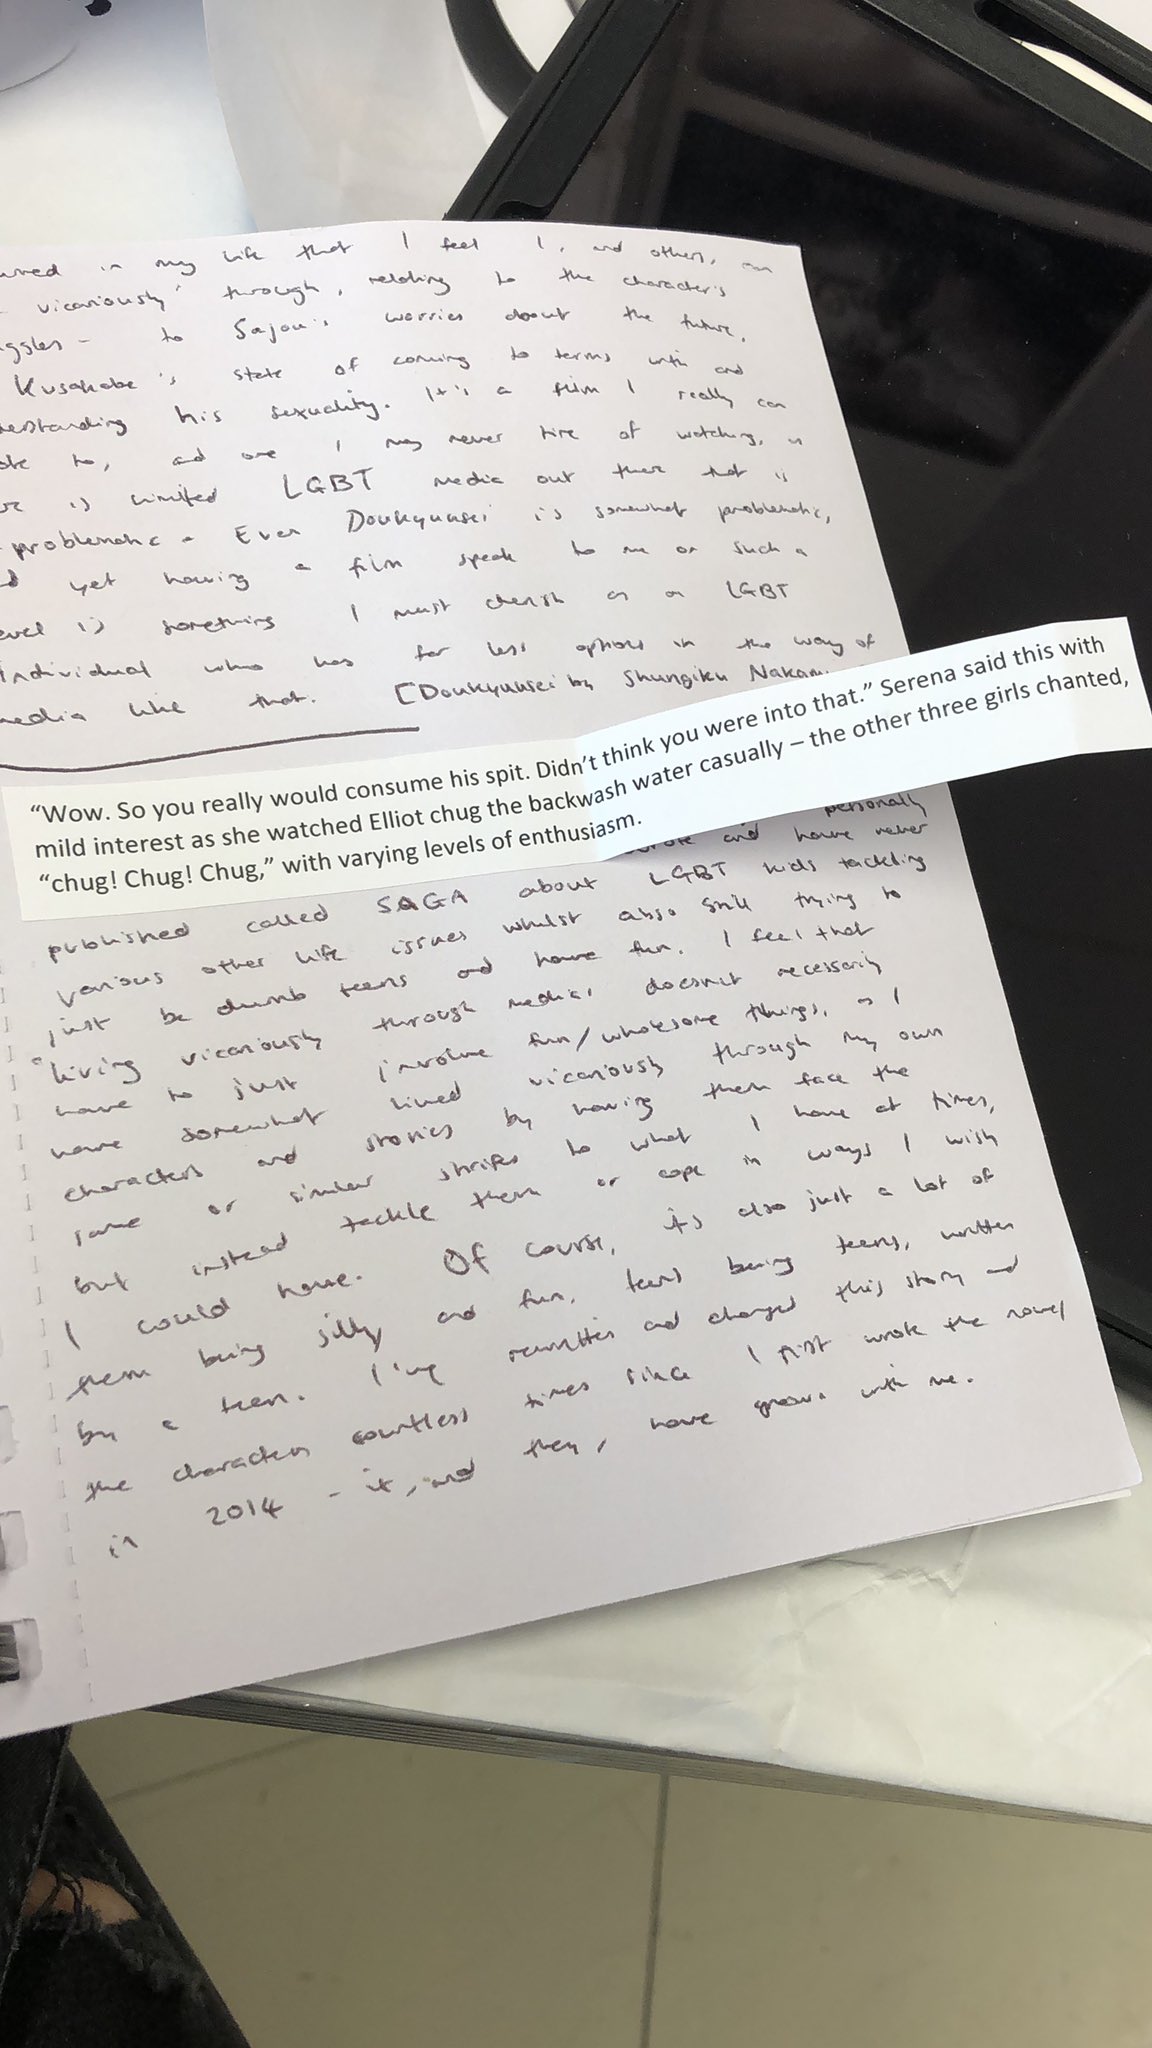 in my life that I feel I, and others, can
vicariously' through, relating to the character's
to Sajou's worries about the future,
Kusakabe's state of coming to terms with and
his sexuality. It's a film I really can
to, and one I may never tire of watching, as
is limited LGBT media out there that is
problematic - Even Doukyuusei is somewhat problematic,
yet having a film speak to me on such a
is something I must cherish as a LGBT
individual who has far less options in the way of
media like that. [Doukyuusei by Shungiku
“Wow. So you really would consume his spit. Didn’t think you were into that.” Serena said this with
mild interest as she watched Elliot chug the backwash water casually – the other three girls chanted,
“chug! Chug! Chug,” with varying levels of enthusiasm.
personally
and have never
published called SAGA about LGBT kids tackling
various other life issues whilst also still trying to
just be dumb teens and have fun. I feel that
"living vicariously through media' doesn't necessarily
have to just involve fun/wholesome things, as I
have somewhat lived vicariously through my own
characters and stories by having them face the
same or similar strifes to what I have at times,
but instead tackle them or cope in ways I wish
I could have. Of course, it's also just a lot of
them being silly and fun, teens being teens, written
by a teen. I've rewritten and changed this story and
the characters countless times since I first wrote the novel
in 2014 - it, and they, have grown with me.